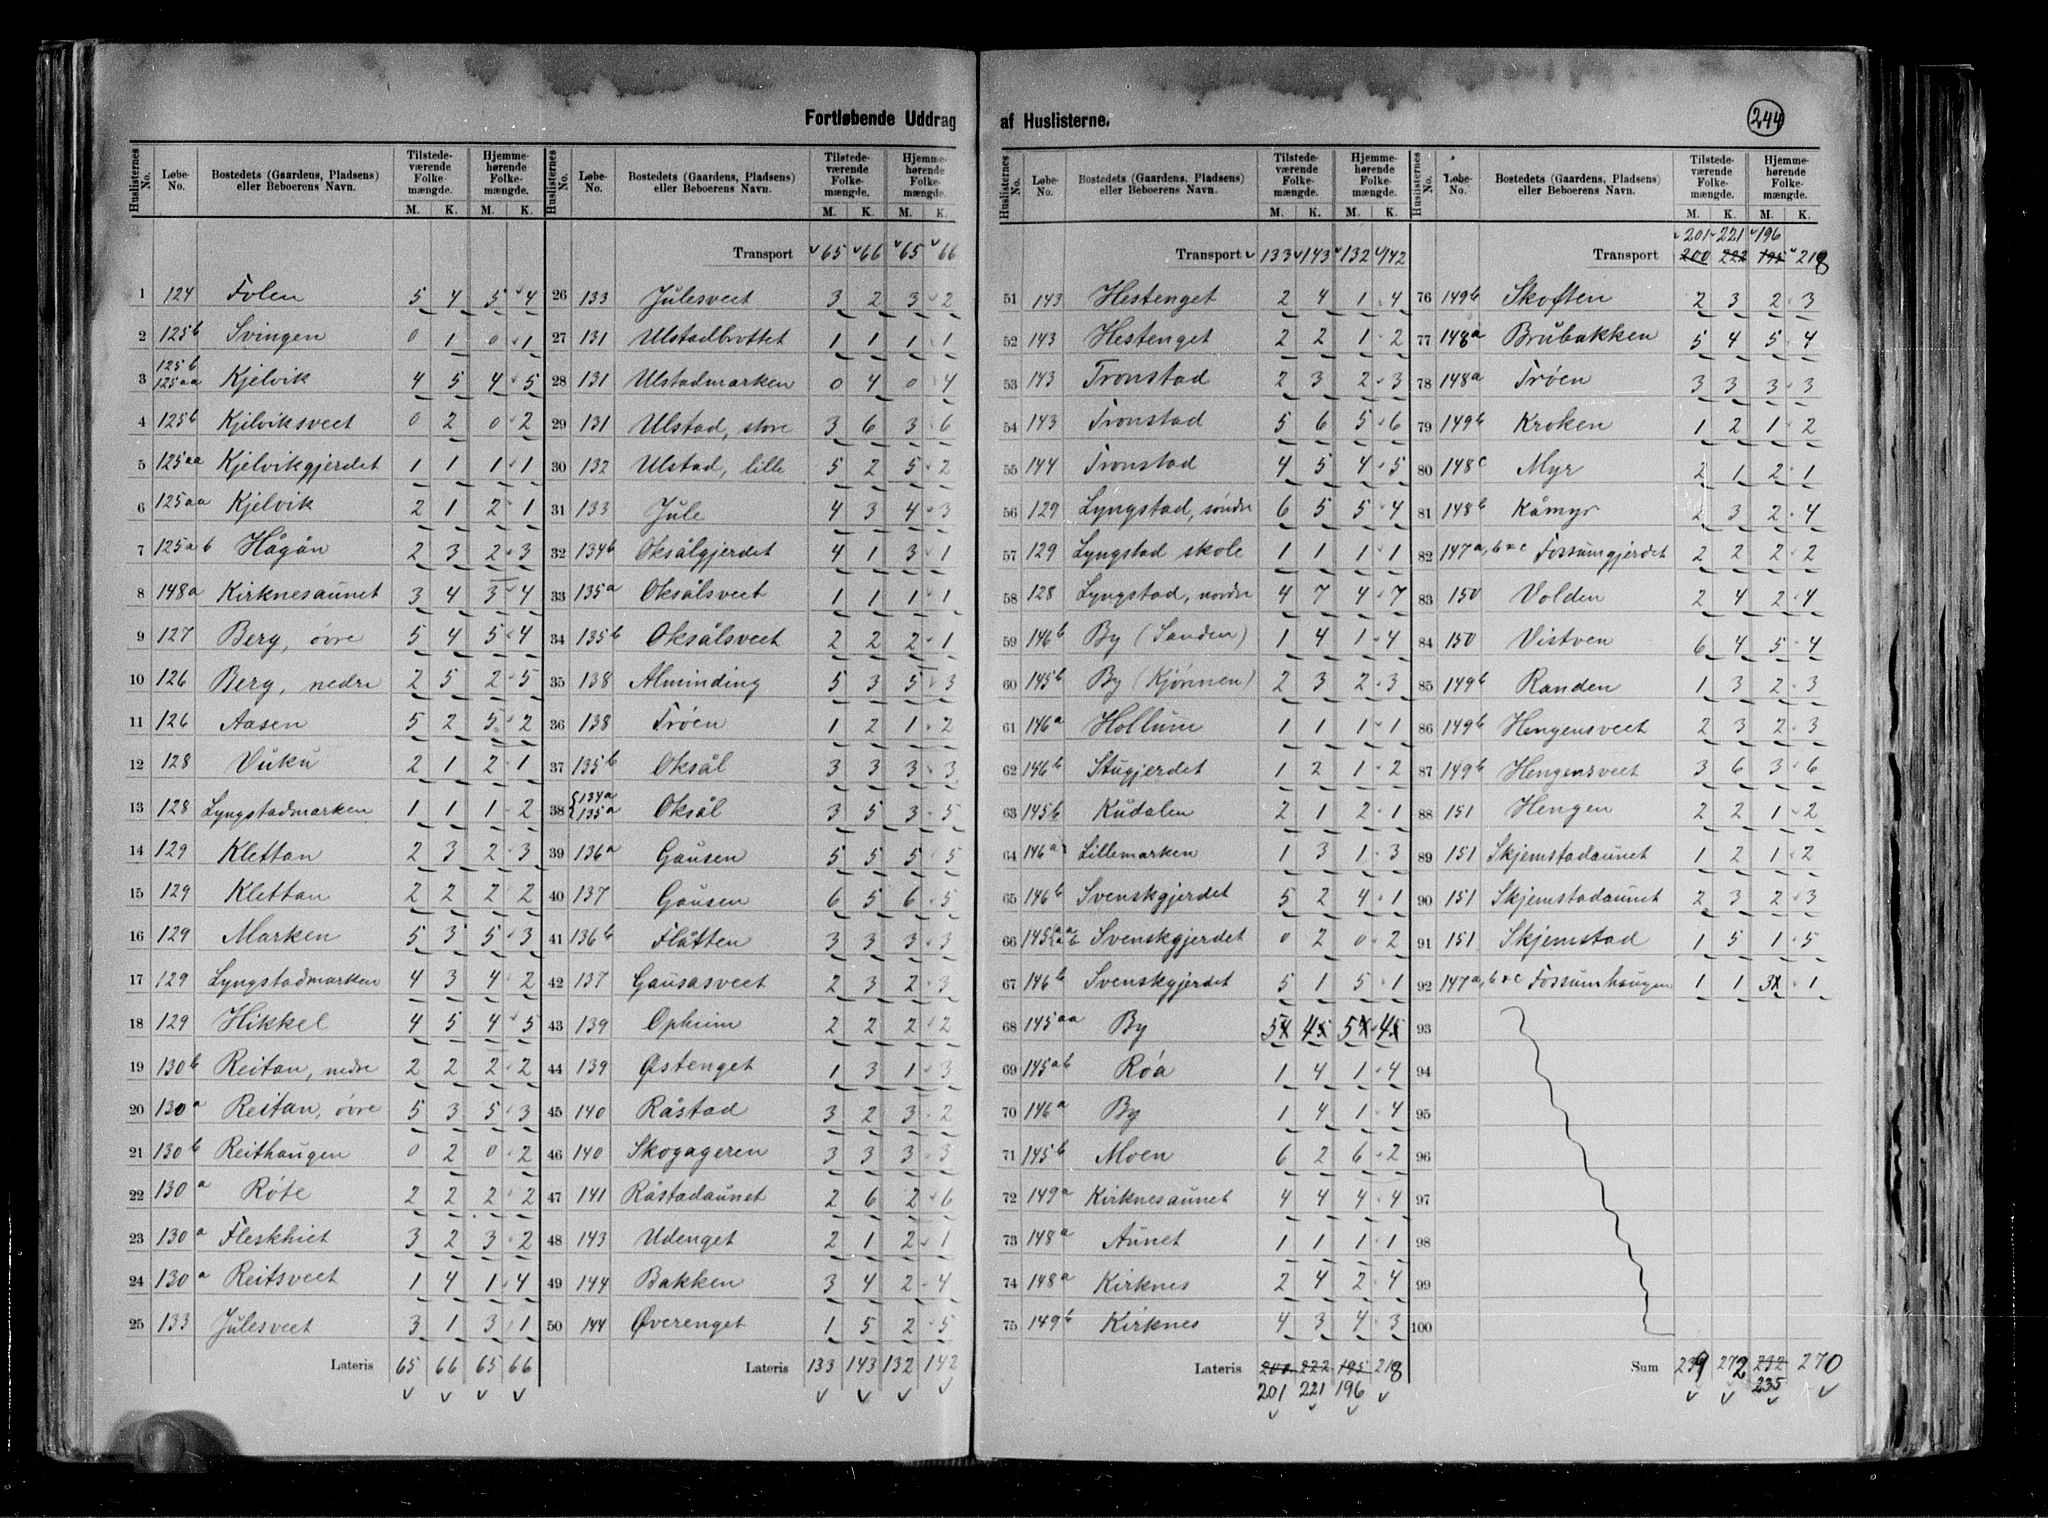 Fortløbende Uddrag af Huslisterne.
244
Huslisternes No. Løbe-No. Bostedets (Gaardens, Pladsens) eller Beboerens Navn. Tilstedeværende Folkemængde. Hjemmehørende Folkemængde.
M. K. M. K.
1 124 Folen 5 4 5 4
2 125b Svingen 0 1 0 1
3 125b 125aa Kjelvik 4 5 4 5
4 125b Kjelviksveet 0 2 0 2
5 125aa Kjelvikgjerdet 1 1 1 1
6 125aa Kjelvik 2 1 2 1
7 125ab Hågån 2 3 2 3
8 148a Kirknesaunet 3 4 3 4
9 127 Berg, övre 5 4 5 4
10 126 Berg, nedre 2 5 2 5
11 126 Aasen 5 2 5 2
12 128 Vuku 2 1 2 1
13 128 Lyngstadmarken 1 1 1 2
14 129 Klettan 2 3 2 3
15 129 Klettan 2 2 2 2
16 129 Marken 5 3 5 3
17 129 Lyngstadmarken 4 3 4 2
18 129 Hikkel 4 5 4 5
19 130b Reitan, nedre 2 2 2 2
20 130a Reitan, övre 5 3 5 3
21 130b Reithaugen 0 2 0 2
22 130a Röte 2 2 2 2
23 130a Fleskhiet 3 2 3 2
24 130a Reitsveet 1 4 1 4
25 133 Julesveet 3 1 3 1
Lateris 65 66 65 66
Huslisternes No. Løbe-No. Bostedets (Gaardens, Pladsens) eller Beboerens Navn. Tilstedeværende Folkemængde. Hjemmehørende Folkemængde.
M. K. M. K.
Transport 65 66 65 66
26 133 Julesveet 3 2 3 2
27 131 Ulstadbrottet 1 1 1 1
28 131 Ulstadmarken 0 4 0 4
29 131 Ulstad, store 3 6 3 6
30 132 Ulstad, lille 5 2 5 2
31 133 Jule 4 3 4 3
32 134b Oksålgjerdet 4 1 3 1
33 135a Oksålsveet 1 1 1 1
34 135b Oksålsveet 2 2 2 1
35 138 Alminding 5 3 5 3
36 138 Tröen 1 2 1 2
37 135b Oksål 3 3 3 3
38 134a 135a Oksål 3 5 3 5
39 136a Gausen 5 5 5 5
40 137 Gausen 6 5 6 5
41 136b Flåtten 3 3 3 3
42 137 Gausasveet 2 3 2 3
43 139 Opheim 2 2 2 2
44 139 Østenget 1 3 1 3
45 140 Råstad 3 2 3 2
46 140 Skogageren 3 3 3 3
47 141 Råstadaunet 2 6 2 6
48 143 Udenget 2 1 2 1
49 144 Bakken 3 4 2 4
50 144 Øverenget 1 5 2 5
Lateris 133 143 132 142
Huslisternes No. Løbe-No. Bostedets (Gaardens, Pladsens) eller Beboerens Navn. Tilstedeværende Folkemængde. Hjemmehørende Folkemængde.
M. K. M. K.
Transport 133 143 132 142
51 143 Hestenget 2 4 1 4
52 143 Hestenget 2 2 1 2
53 143 Tronstad 2 3 2 3
54 143 Tronstad 5 6 5 6
55 144 Tronstad 4 5 4 5
56 129 Lyngstad, söndre 6 5 5 4
57 129 Lyngstad skole 1 1 1 1
58 128 Lyngstad, nordre 4 7 4 7
59 146b By (Sanden) 1 4 1 4
60 145b By (Kjönnen) 2 3 2 3
61 146a Hollum 1 1 1 1
62 146b Stugjerdet 1 2 1 2
63 145b Kudalen 2 1 2 1
64 146a Lillemarken 1 3 1 3
65 146b Svenskgjerdet 5 2 4 1
66 145aa ab Svenskgjerdet 0 2 0 2
67 146b Svenskgjerdet 5 1 5 1
68 145aa By 5 4 5 4
69 145ab Röa 1 4 1 4
70 146a By 1 4 1 4
71 145b Moen 6 2 6 2
72 149a Kirknesaunet 4 4 4 4
73 148a Aunet 1 1 1 1
74 148a Kirknes 2 4 2 4
75 149b Kirknes 4 3 4 3
Lateris 200 222 195 218
201 221 196
Huslisternes No. Løbe-No. Bostedets (Gaardens, Pladsens) eller Beboerens Navn. Tilstedeværende Folkemængde. Hjemmehørende Folkemængde.
M. K. M. K.
201 221 196
Transport 200 222 195 218
76 149b Skoften 2 3 2 3
77 148a Brubakken 5 4 5 4
78 148a Tröen 3 3 3 3
79 149b Kroken 1 2 1 2
80 148c Myr 2 1 2 1
81 148b Kåmyr 2 3 2 4
82 147a, b+c Fossumgjerdet 2 2 2 2
83 150 Volden 2 4 2 4
84 150 Vistven 6 4 5 4
85 149b Randen 1 3 2 3
86 149b Hengensveet 2 3 2 3
87 149b Hengensveet 3 6 3 6
88 151 Hengen 2 2 1 2
89 151 Skjemstadaunet 1 2 1 2
90 151 Skjemstadaunet 2 3 2 3
91 151 Skjemstad 1 5 1 5
92 147a, b+c Fossumhaugen 1 1 3 1
93
94
95
96
97
98
99
100
Sum 239 272 232 270
235